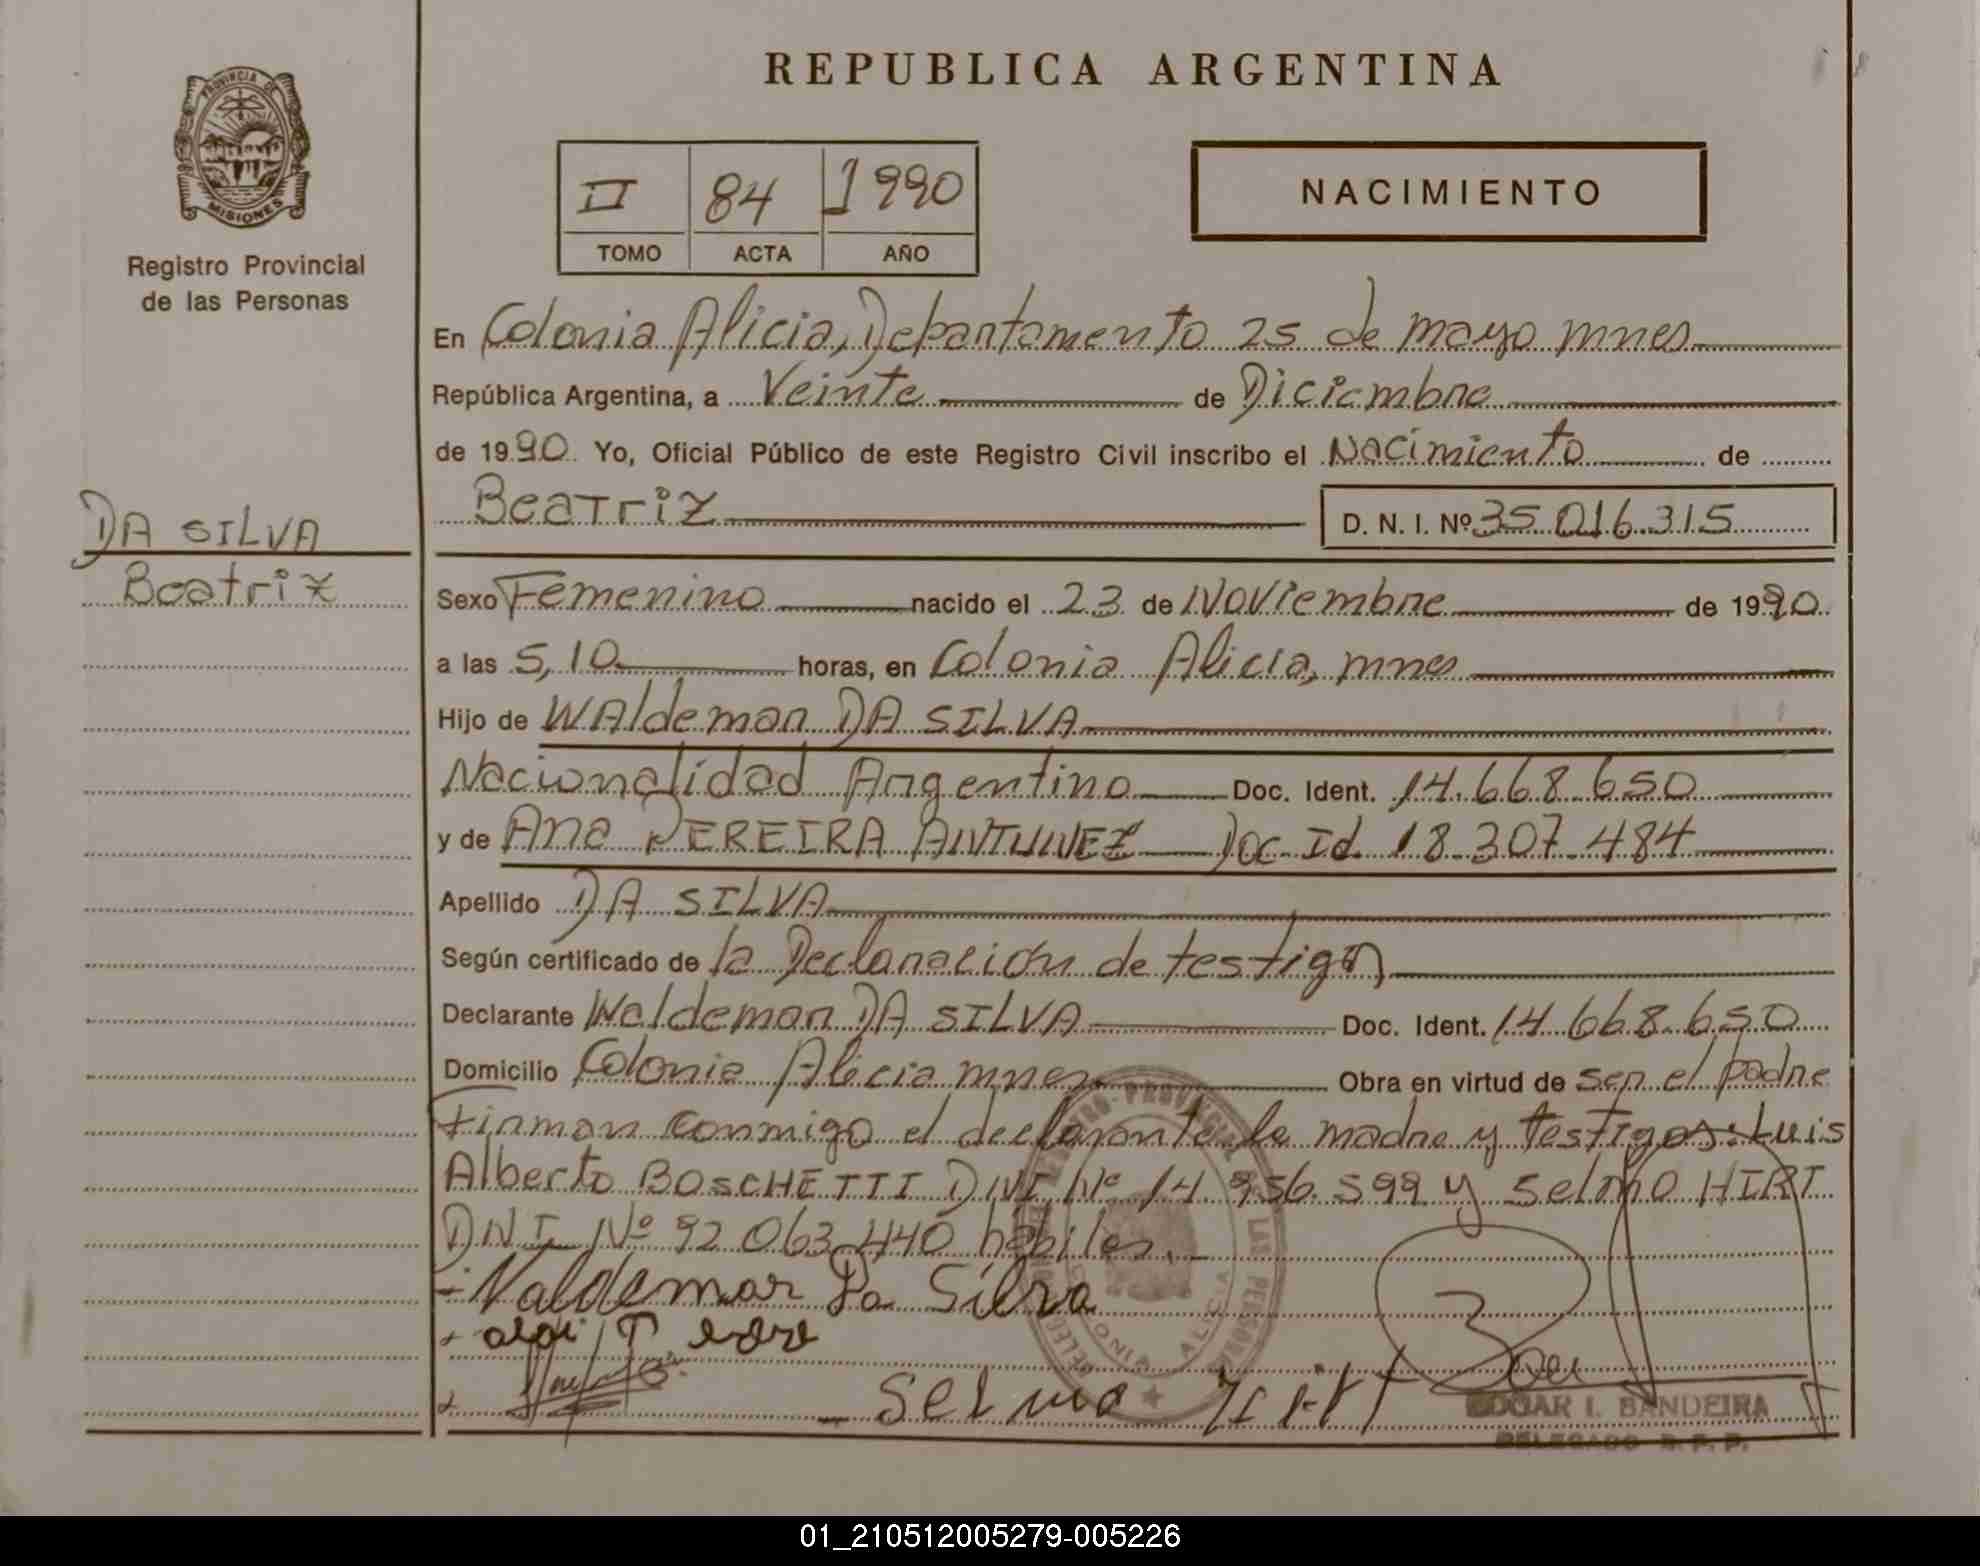 REPUBLICA ARGENTINA
PROVINCIA DE
MISIONES
Registro Provincial
de las Personas
II 84 1990
TOMO ACTA AÑO
NACIMIENTO
En Colonia Alicia, Departamento 25 de mayo mnes
República Argentina, a Veinte de Diciembre
de 1990 Yo, Oficial Público de este Registro Civil inscribo el Nacimiento de
Beatriz D. N. I. Nº 35.016.315
DA SILVA
Beatriz
Sexo Femenino nacido el 23 de Noviembre de 1990
a las 5,10 horas, en Colonia Alicia, mnes
Hijo de WAldemar DA SILVA
Nacionalidad Argentino Doc. Ident. 14.668.650
y de Ana PEREIRA ANTUNEZ Doc Id 18.307.484
Apellido DA SILVA
Según certificado de la Declaración de testigo
Declarante Waldemar DA SILVA Doc. Ident. 14.668.650
Domicilio Colonia Alicia mnes Obra en virtud de ser el padre
Firman conmigo el declarante la madre y testigos: Luis
Alberto BOSCHETTI DNI Nº 14.956.599 y Selmo HIRT
DNI Nº 92.063.440 hábiles.
Valdemar Da Silva
Selmo Hirt
COLONIA ALICIA
EDGAR I. BANDEIRA
DELEGADO R. P. P.
01_210512005279-005226